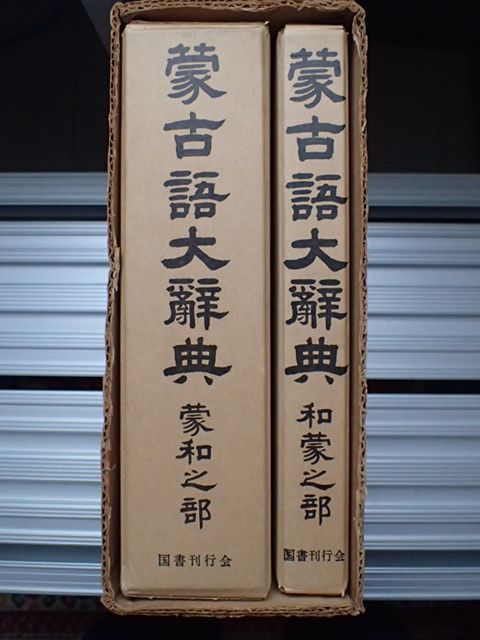 蒙古語大辭典
蒙和之部
国書刊行会
蒙古語大辭典
和蒙之部
国書刊行会